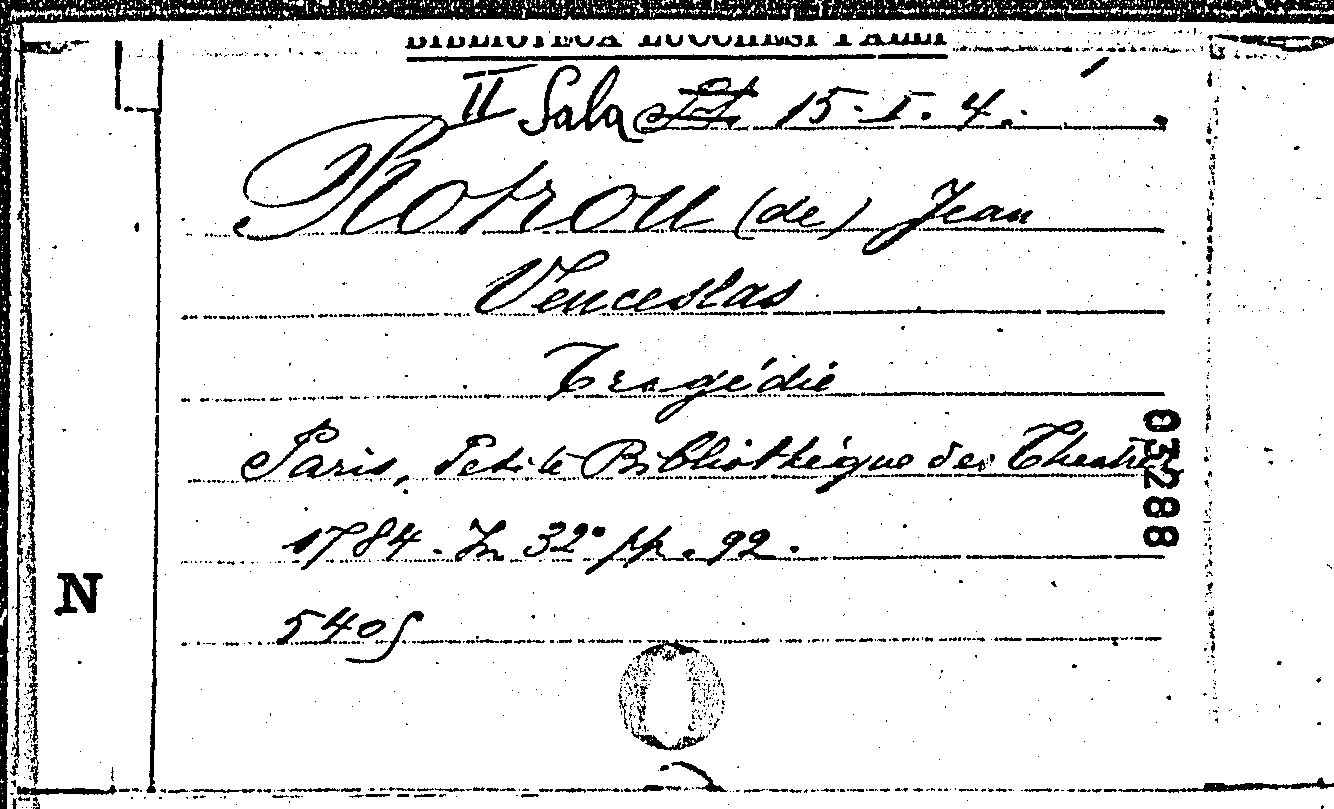 BIBLIOTECA LUCCHESI PALLI
II Sala 15-I. 4.
Rotrou (de) Jean
Venceslas
Tragédie
Paris, Petite Bibliothéque des Theatres
1784. In 32° pp. 92.
5405
03288
N